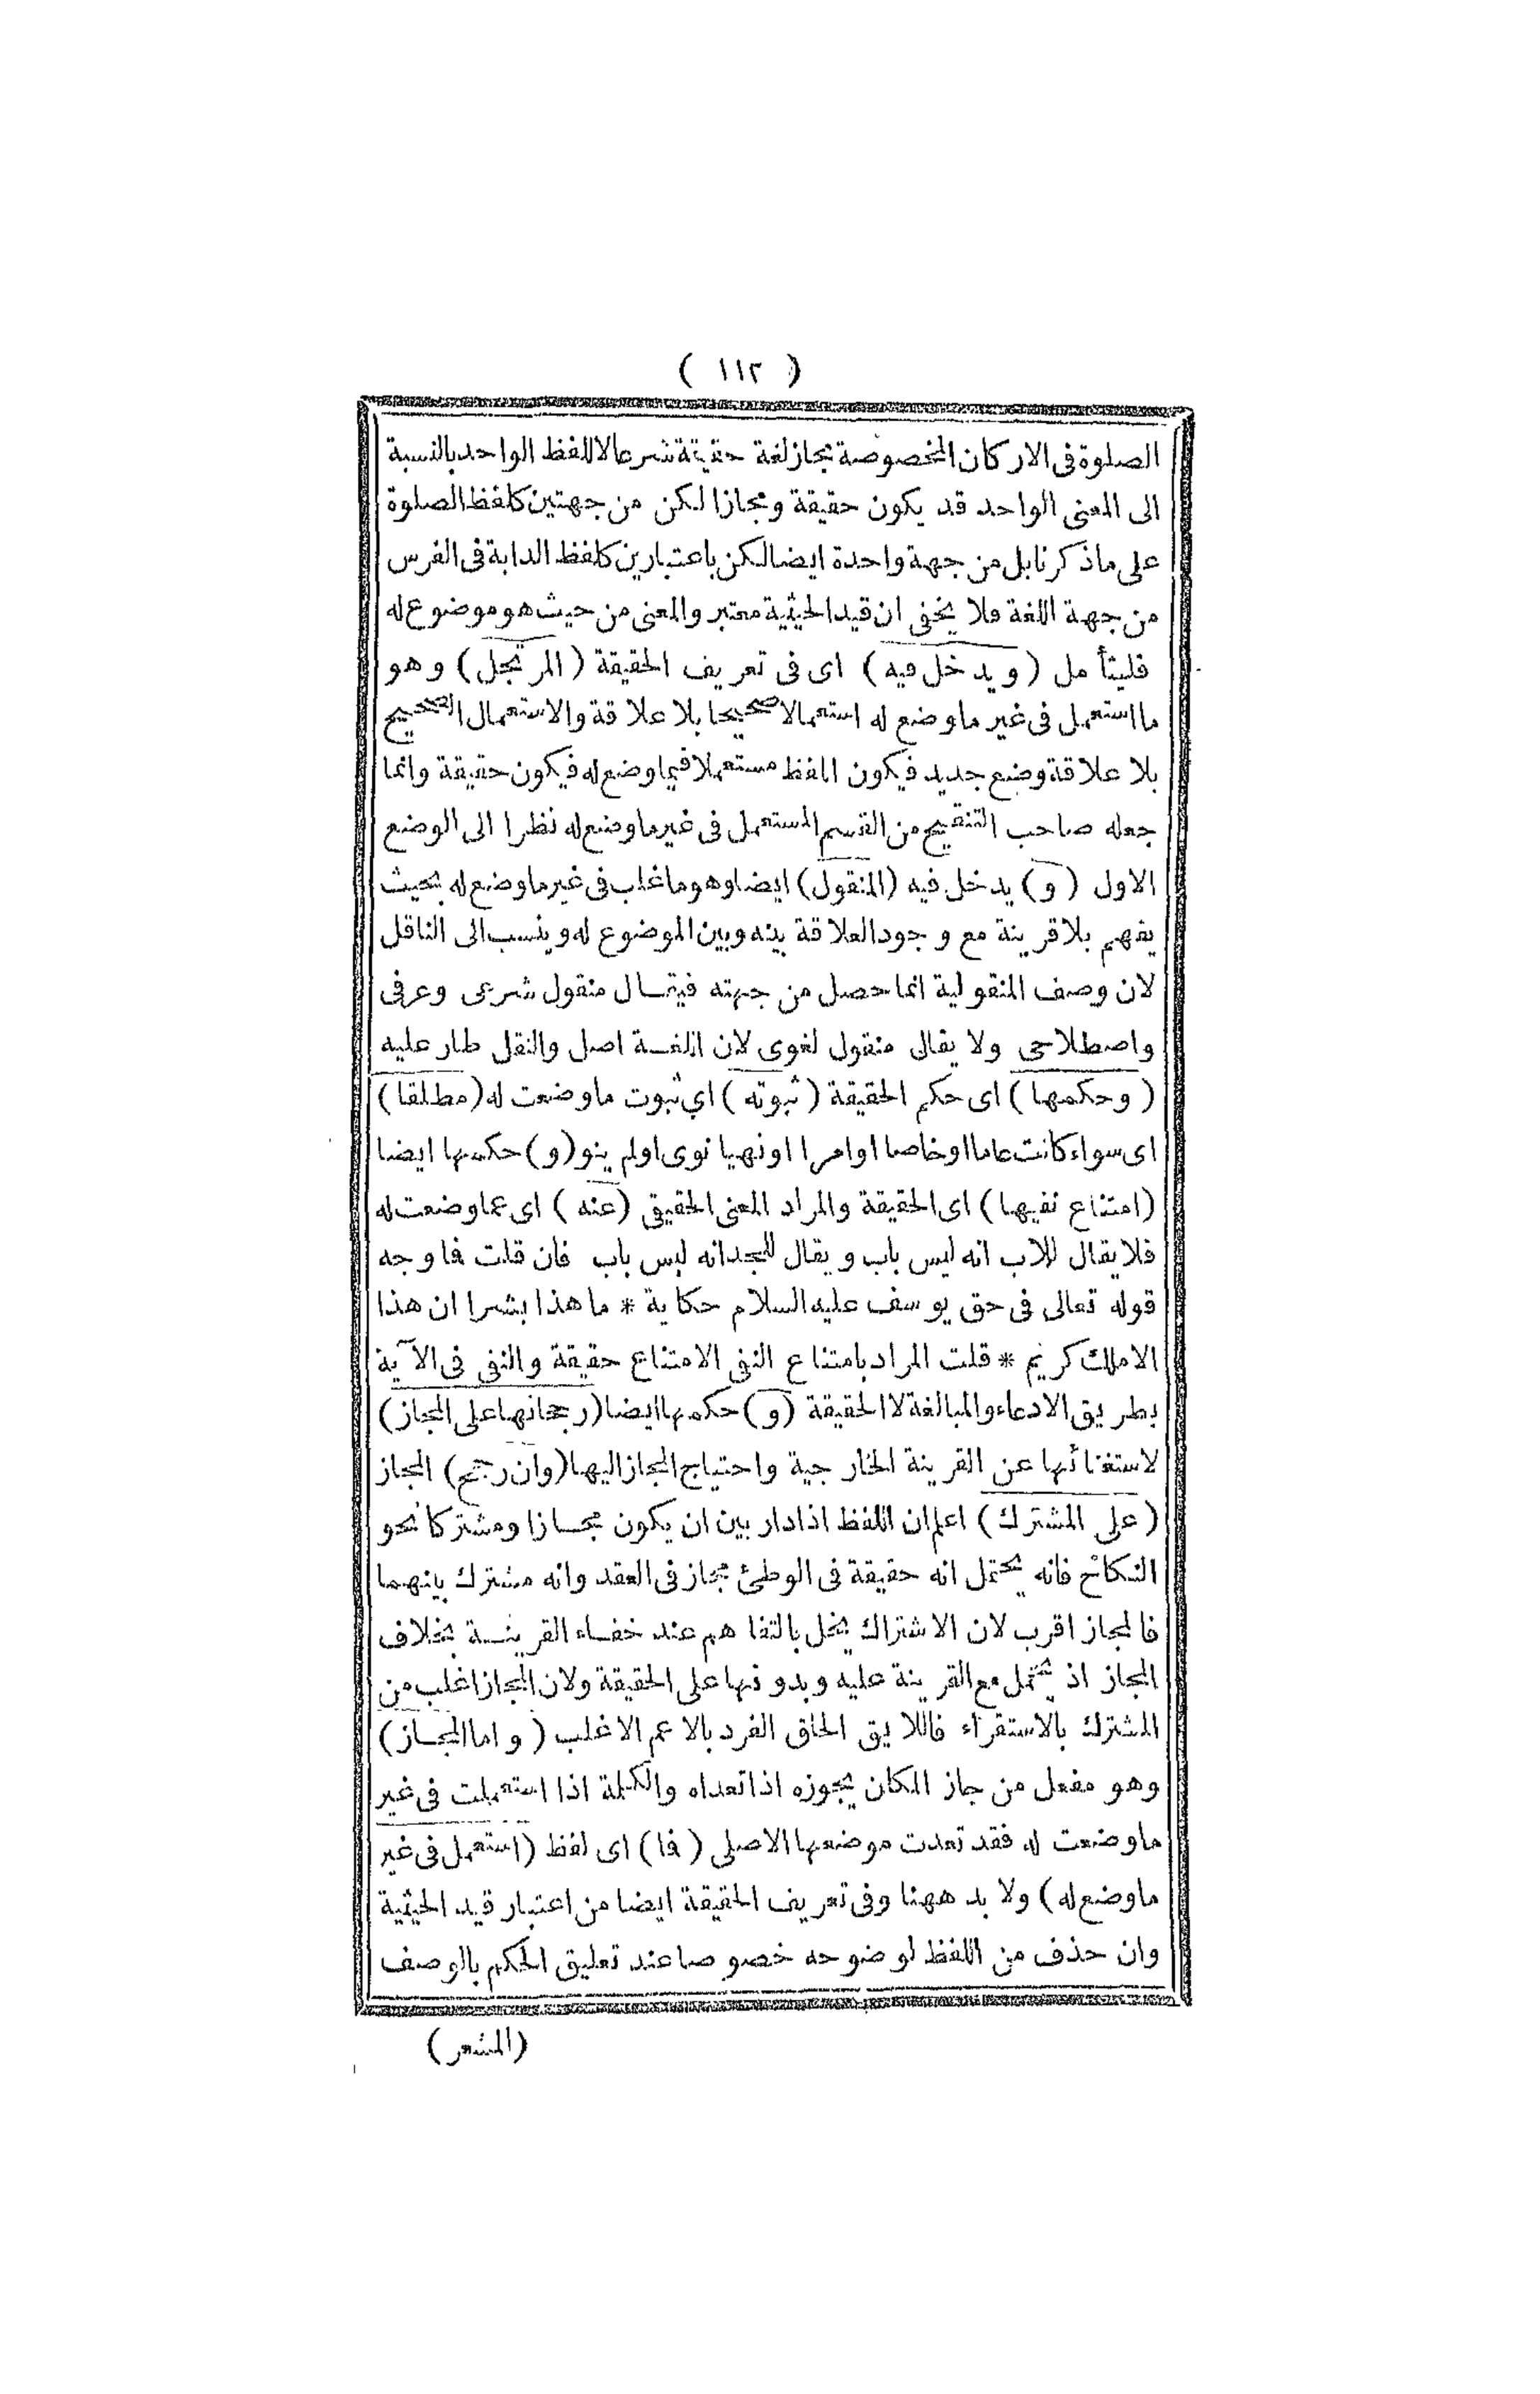 ( ١١٢ )
الصلوة فى الاركان المخصوصة مجاز لغة حقيقة شرعا لا اللفظ الواحد بالنسبة
الى المعنى الواحد قد يكون حقيقة ومجازا لكن من جهتين كلفظ الصلوة
على ماذكرنا بل من جهة واحدة ايضا لكن باعتبارين كلفظ الدابة فى الفرس
من جهة اللغة ولا يخفى ان قيد الحيثية معتبر والمعنى من حيث هو موضوع له
فليتأمل ( ويدخل فيه ) اى فى تعريف الحقيقة ( المرتجل ) وهو
ما استعمل فى غير ما وضع له استعمالا صحيحا بلا علاقة والاستعمال الصحيح
بلا علاقة وضع جديد فيكون اللفظ مستعملا فيما وضع له فيكون حقيقة وانما
جعله صاحب التنقيح من القسم المستعمل فى غير ما وضع له نظرا الى الوضع
الاول ( و ) يدخل فيه ( المنقول ) ايضا وهو ما غلب فى غير ما وضع له بحيث
يفهم بلا قرينة مع وجود العلاقة بينه وبين الموضوع له وينسب الى الناقل
لان وصف المنقولية انما حصل من جهته فيقال منقول شرعى وعرفى
واصطلاحى ولا يقال منقول لغوى لان اللغة اصل والنقل طار عليه
( وحكمها ) اى حكم الحقيقة ( ثبوته ) اي ثبوت ما وضعت له ( مطلقا )
اى سواء كانت عاما او خاصا او امرا او نهيا نوى او لم ينو ( و ) حكمها ايضا
( امتناع نفيها ) اى الحقيقة والمراد المعنى الحقيقى ( عنه ) اى عما وضعت له
فلا يقال للاب انه ليس باب ويقال للجد انه ليس باب فان قلت فما وجه
قوله تعالى فى حق يوسف عليه السلام حكاية * ما هذا بشرا ان هذا
الا ملك كريم * قلت المراد بامتناع النفى الامتناع حقيقة والنفى فى الآية
بطريق الادعاء والمبالغة لا الحقيقة ( و ) حكمها ايضا ( رجحانها على المجاز )
لاستغنائها عن القرينة الخارجية واحتياج المجاز اليها ( وان رجح ) المجاز
( على المشترك ) اعلم ان اللفظ اذا دار بين ان يكون مجازا ومشتركا نحو
النكاح فانه يحتمل انه حقيقة فى الوطئ مجاز فى العقد وانه مشترك بينهما
فالمجاز اقرب لان الاشتراك يخل بالتفاهم عند خفاء القرينة بخلاف
المجاز اذ يحمل مع القرينة عليه وبدونها على الحقيقة ولان المجاز اغلب من
المشترك بالاستقراء فاللايق الحاق الفرد بالاعم الاغلب ( واما المجاز )
وهو مفعل من جاز المكان يجوزه اذا تعداه والكلمة اذا استعملت فى غير
ما وضعت له فقد تعدت موضعها الاصلى ( فما ) اى لفظ ( استعمل فى غير
ما وضع له ) ولا بد ههنا وفى تعريف الحقيقة ايضا من اعتبار قيد الحيثية
وان حذف من اللفظ لوضوحه خصوصا عند تعليق الحكم بالوصف
( المشعر )